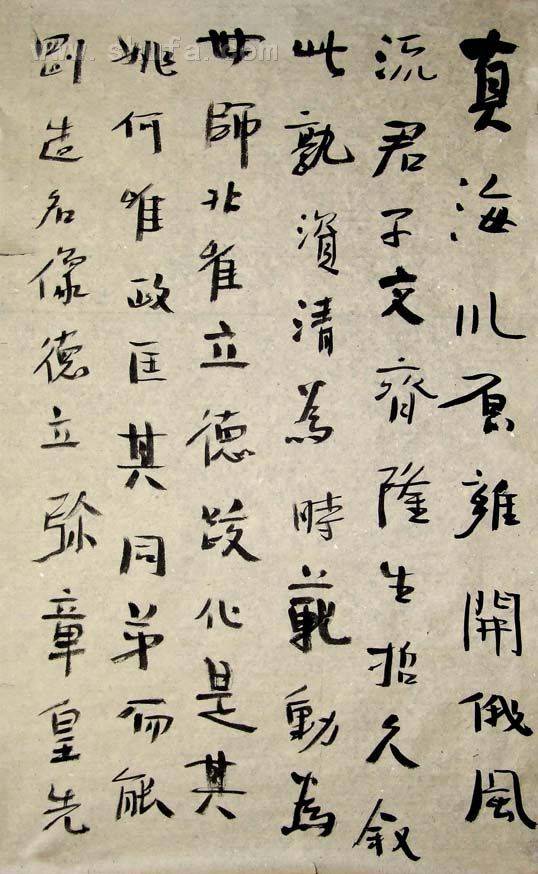 www.shufa.com
真海川原雍開俄風
流君子文齊隆生哲久叙
此孰資清為時范動為
世師非隹立德政化是其
兆何唯政匡其同弟而能
劉造名像德立弥章皇先